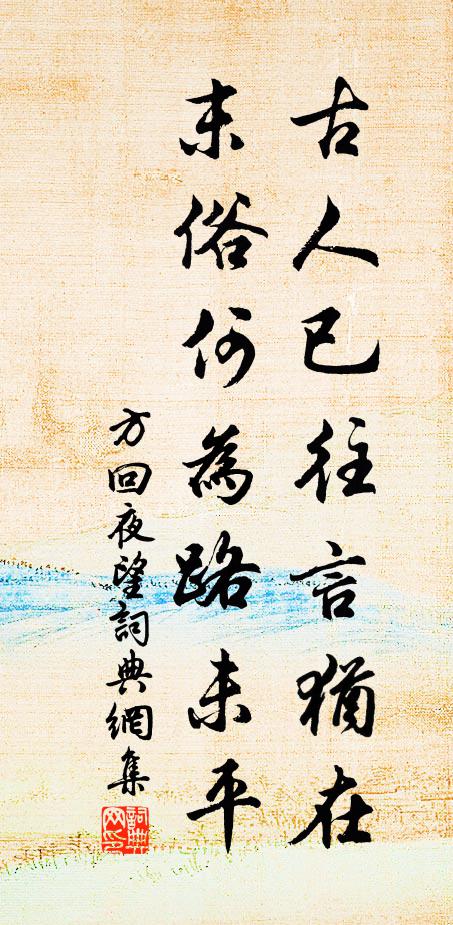 古人已往言猶在
末俗何為路未平
方回夜望詞典網集
詞典